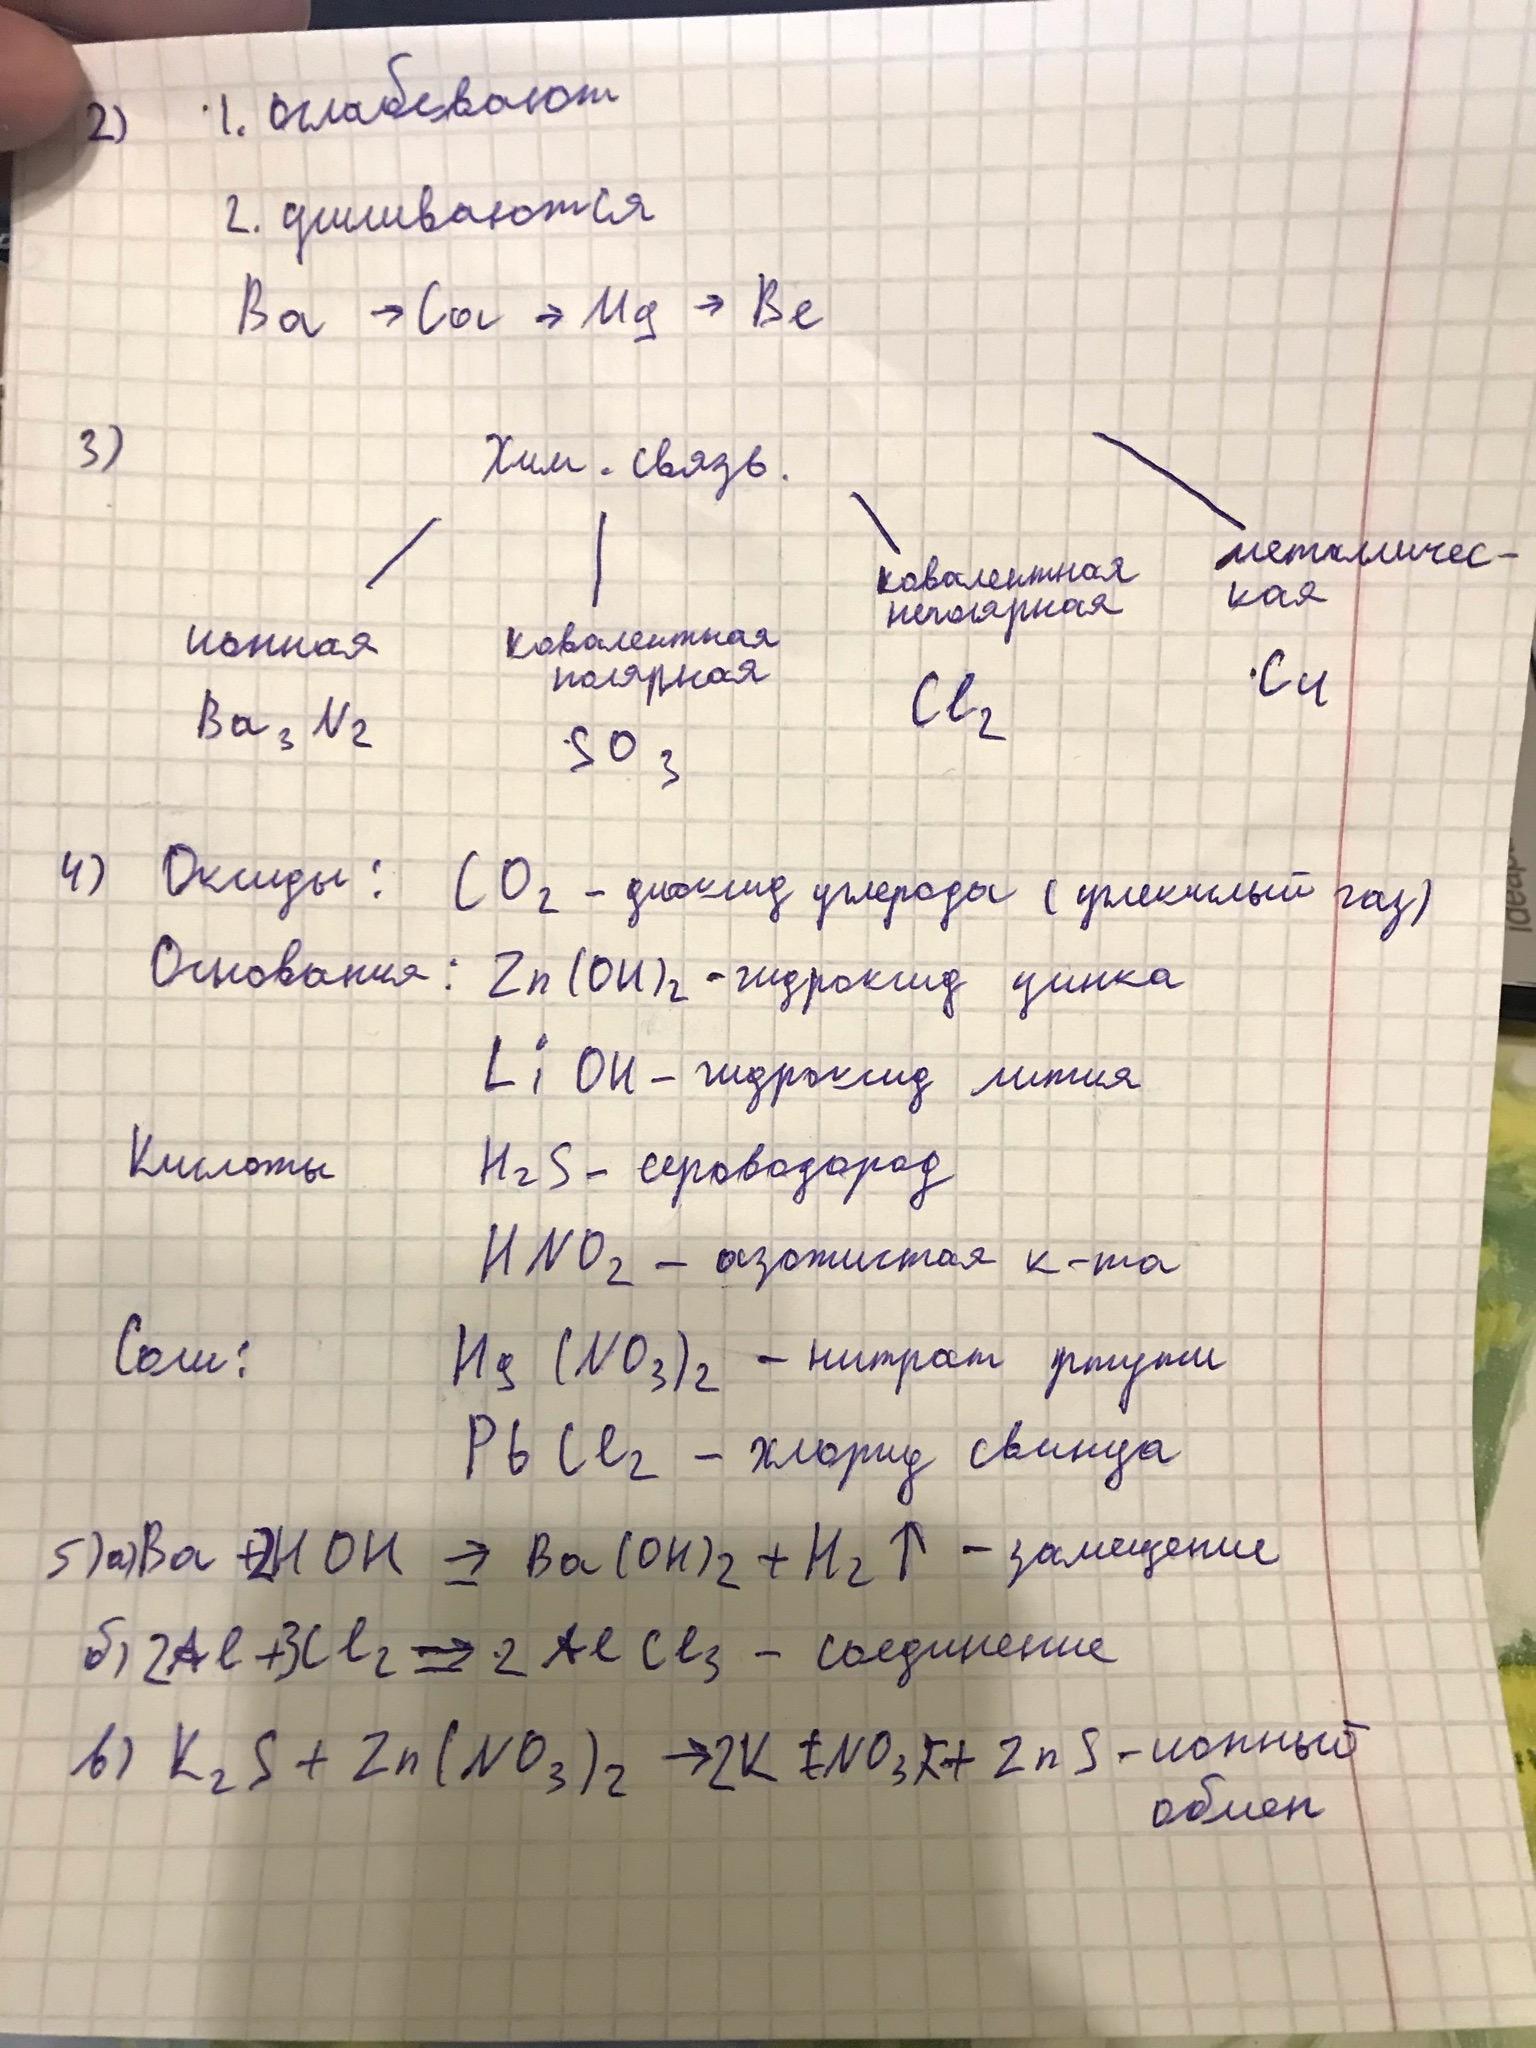 2) 1. ослабевают
2. усиливаются
Ba → Ca → Mg → Be
3) Хим. связь.
ионная
ковалентная
полярная
ковалентная
неполярная
металличес-
кая
Ba₃N₂
SO₃
Cl₂
Cu
4) Оксиды: CO₂ - диоксид углерода (углекислый газ)
Основания: Zn(OH)₂ - гидроксид цинка
LiOH - гидроксид лития
Кислоты H₂S - сероводород
HNO₂ - азотистая к-та
Соли: Hg(NO₃)₂ - нитрат ртути
PbCl₂ - хлорид свинца
5) а) Ba + 2HOH → Ba(OH)₂ + H₂↑ - замещение
б) 2Al + 3Cl₂ → 2AlCl₃ - соединение
в) K₂S + Zn(NO₃)₂ → 2KNO₃ + ZnS - ионный
обмен